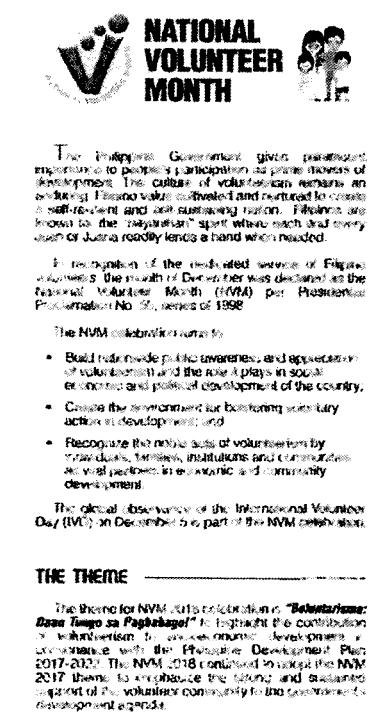 NATIONAL
VOLUNTEER
MONTH
The Philippine Government gives paramount
importance to people's participation as prime movers of
development. The culture of volunteerism remains an
enduring Filipino value cultivated and nurtured to create
a self-reliant and self-sustaining nation. Filipinos are
known for the "bayanihan" spirit where each and every
Juan or Juana readily lends a hand when needed.
In recognition of the dedicated service of Filipino
volunteers, the month of December was declared as the
National Volunteer Month (NVM) per Presidential
Proclamation No. 55, series of 1998
The NVM celebration aims to
• Build nationwide public awareness and appreciation
of volunteerism and the role it plays in social
economic and political development of the country;
• Create the environment for bolstering voluntary
action in development; and
• Recognize the noble acts of volunteerism by
individuals, families, institutions and communities
as vital partners in economic and community
development.
The global observance of the International Volunteer
Day (IVD) on December 5 is part of the NVM celebration.
THE THEME
The theme for NVM 2018 celebration is "Boluntarismo:
Daan Tungo sa Pagbabago!" to highlight the contribution
of volunteerism to socio-economic development in
consonance with the Philippine Development Plan
2017-2022. The NVM 2018 continued to adopt the NVM
2017 theme to emphasize the strong and sustained
support of the volunteer community to the government's
development agenda.